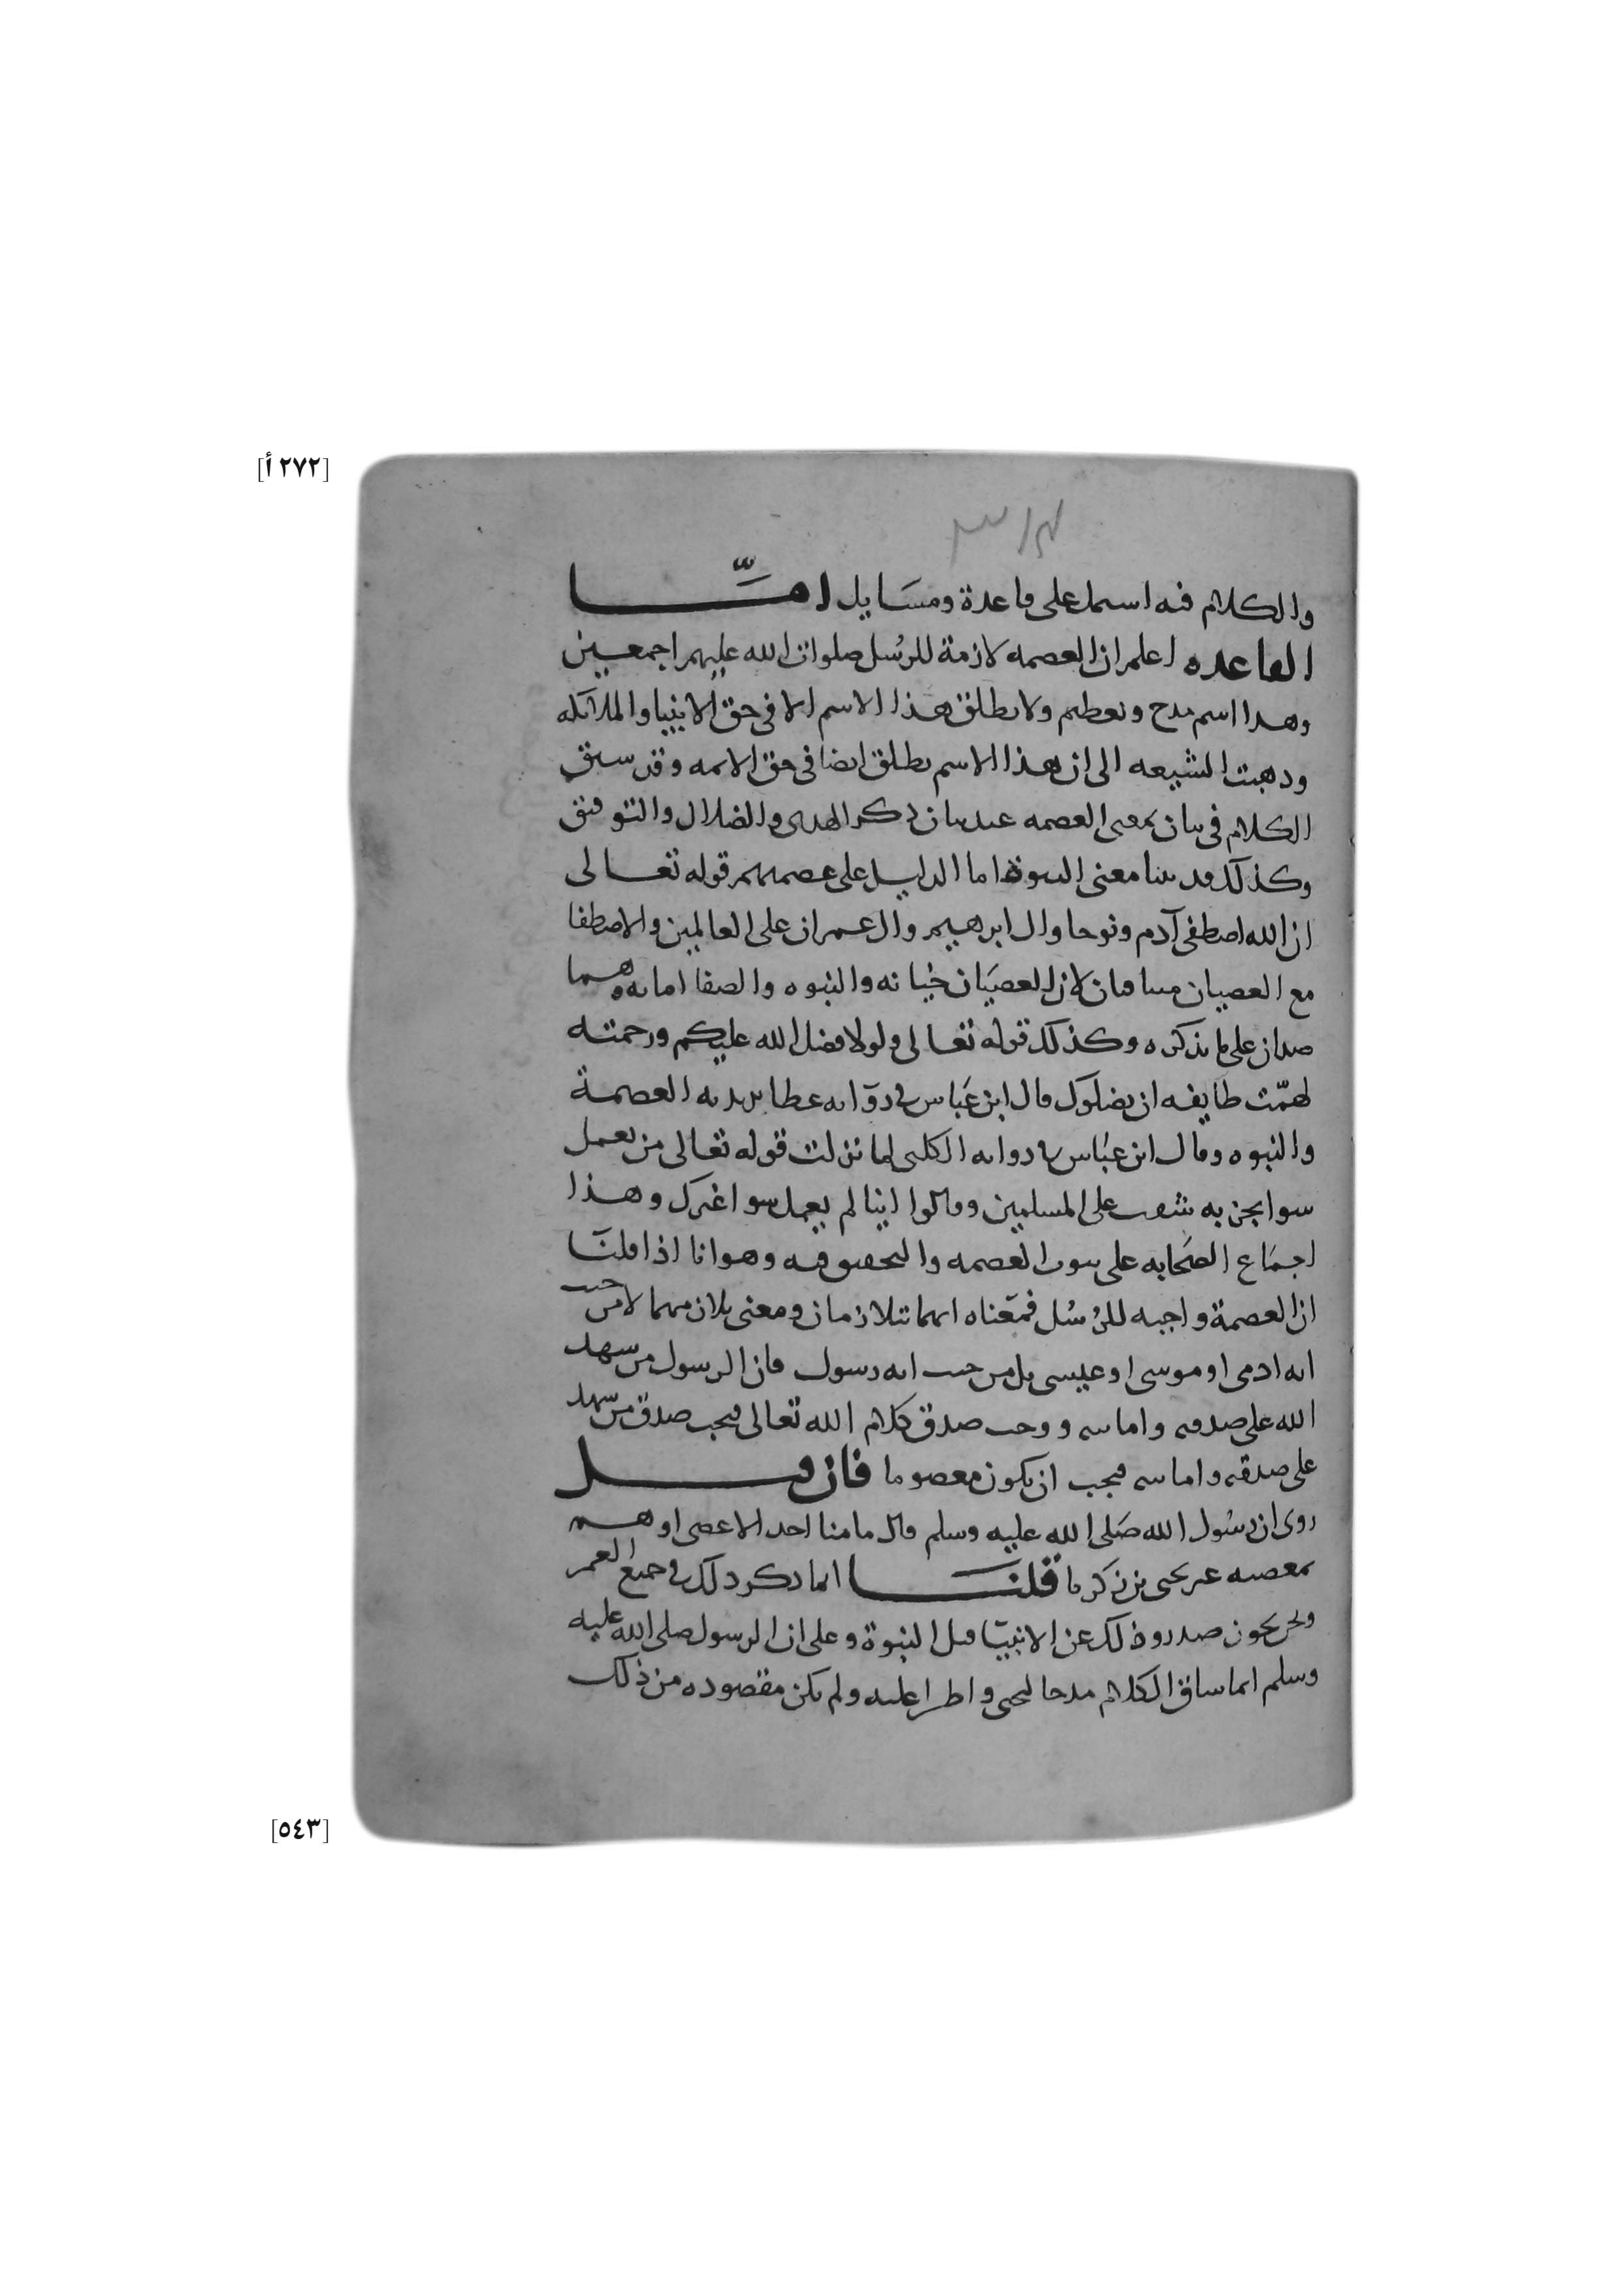 [٢٧٢ أ]
والكلام فيه اشتمل على قاعدة ومسايل امّا
القاعده اعلم ان العصمه لازمة للرسل صلوات الله عليهم اجمعين
وهذا اسم مدح وتعظيم ولا يطلق هذا الاسم الا في حق الانبيا والملائكه
وذهبت الشيعه الى ان هذا الاسم يطلق ايضا في حق الائمه وقد سبق
الكلام في بيان معنى العصمه عند بيان ذكر الهدى والضلال والتوفيق
وكذلك قد بينا معنى النبوة اما الدليل على عصمتهم قوله تعالى
ان الله اصطفى آدم ونوحا وال ابرهيم وال عمران على العالمين والاصطفا
مع العصيان متنافيان لان العصيان خيانه والنبوه والصفا امانه وهما
ضدان على ما نذكره وكذلك قوله تعالى ولولا فضل الله عليكم ورحمته
لهمّت طايفه ان يضلوك قال ابن عباس في رواية عطا يريد به العصمة
والنبوه وقال ابن عباس في رواية الكلبي لما نزلت قوله تعالى من يعمل
سوا يجز به شقت على المسلمين وقالوا اينا لم يعمل سوا غيرك وهذا
اجماع الصحابه على ثبوت العصمه والتحقيق فيه وهو انا اذا قلنا
ان العصمة واجبه للرسل فمعناه انهما تتلازمان ومعنى تلازمهما لا من حيث
انه ادمى او موسى او عيسى بل من حيث انه رسول فان الرسول من شهد
الله على صدقه وامانته ووجب صدق كلام الله تعالى فيجب صدق من شهد
على صدقه وامانته فيجب ان يكون معصوما فان قيل
روى ان رسول الله صلى الله عليه وسلم قال ما منا احد الا عصى او هم
بمعصيه غير يحيى بن زكريا قلنا انما ذكر ذلك في جميع العمر
ونحن نجوز صدور ذلك عن الانبيا قبل النبوة وعلى ان الرسول صلى الله عليه
وسلم انما ساق الكلام مدحا ليحيى واطرا عليه ولم يكن مقصوده من ذلك
[٥٤٣]